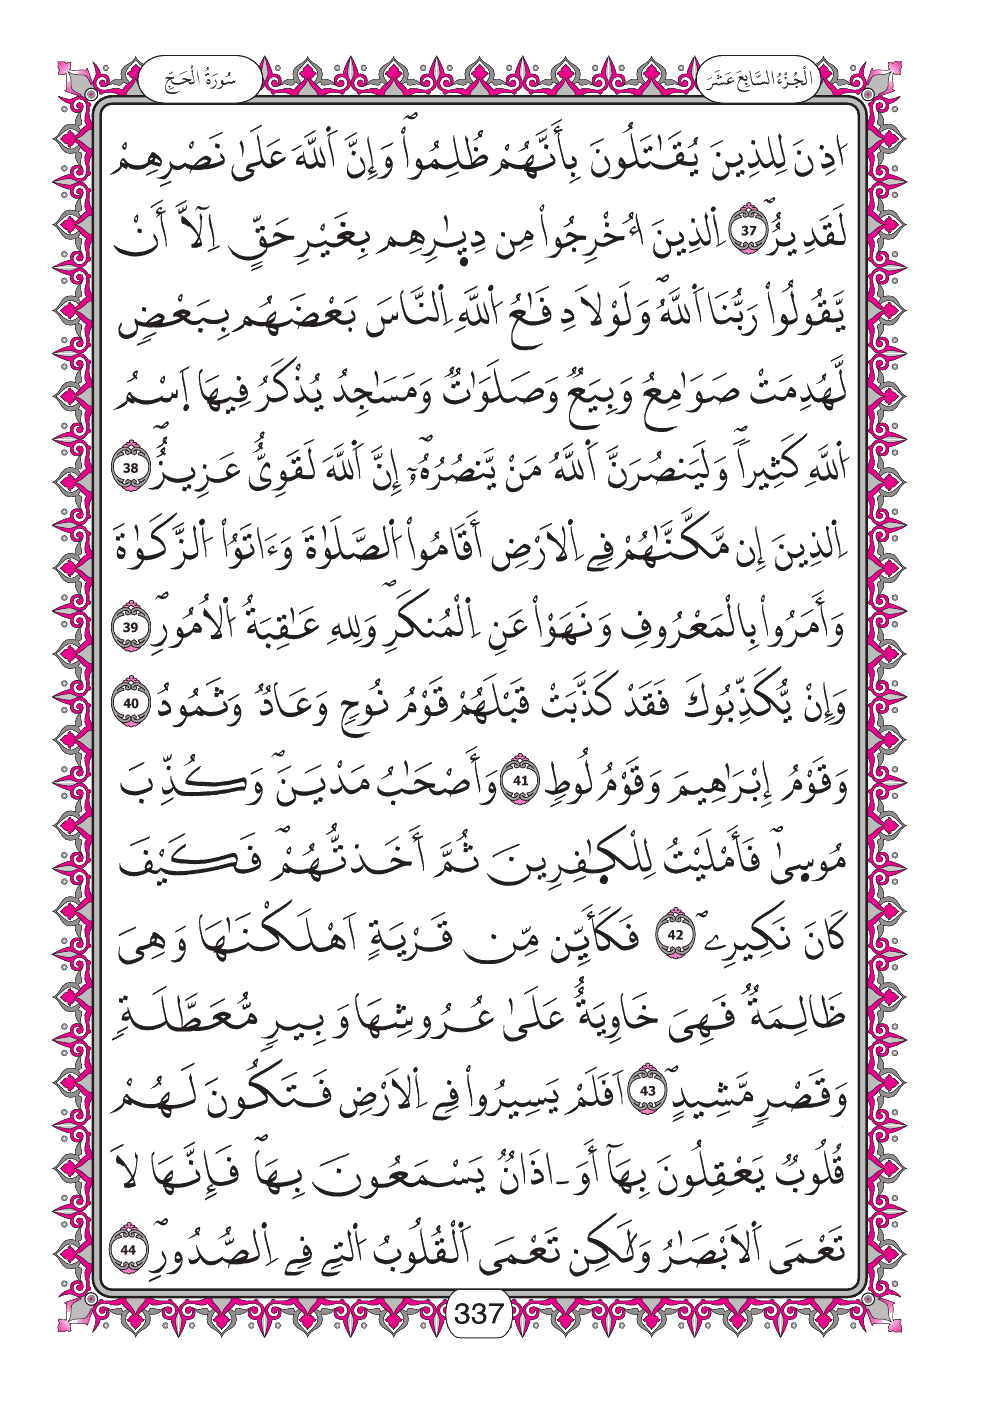 الْجُزْءُ السَّابِعَ عَشَرَ
سُورَةُ الْحَجّ
اُذِنَ لِلذِينَ يُقَٰتَلُونَ بِأَنَّهُمْ ظُلِمُواْۖ وَإِنَّ اَ۬للَّهَ عَلَىٰ نَصْرِهِمْ
لَقَدِيرٌۖ 37 اِ۬لذِينَ أُخْرِجُواْ مِن دِيٰ۪رِهِم بِغَيْرِ حَقٍّ اِلَّآ أَنْ
يَّقُولُواْ رَبُّنَا اَ۬للَّهُۖ وَلَوْلَا دِفَٰعُ اُ۬للَّهِ اِ۬لنَّاسَ بَعْضَهُم بِبَعْضٖ
لَّهُدِمَتْ صَوَٰمِعُ وَبِيَعٌ وَصَلَوَٰتٌ وَمَسَٰجِدُ يُذْكَرُ فِيهَا اَ۪سْمُ
اُ۬للَّهِ كَثِيراٗۖ وَلَيَنصُرَنَّ اَ۬للَّهُ مَنْ يَّنصُرُهُۥٓۖ إِنَّ اَ۬للَّهَ لَقَوِيٌّ عَزِيزٌۖ 38
اِ۬لذِينَ إِن مَّكَّنَّٰهُمْ فِے اِ۬لَارْضِ أَقَامُواْ اُ۬لصَّلَوٰةَ وَءَاتَوُاْ اُ۬لزَّكَوٰةَ
وَأَمَرُواْ بِالْمَعْرُوفِ وَنَهَوْاْ عَنِ اِ۬لْمُنكَرِۖ وَلِلهِ عَٰقِبَةُ اُ۬لُامُورِۖ 39
وَإِنْ يُّكَذِّبُوكَ فَقَدْ كَذَّبَتْ قَبْلَهُمْ قَوْمُ نُوحٖ وَعَادٌ وَثَمُودُ 40
وَقَوْمُ إِبْرَٰهِيمَ وَقَوْمُ لُوطٖ 41 وَأَصْحَٰبُ مَدْيَنَۖ وَكُذِّبَ
مُوس۪ىٰۖ فَأَمْلَيْتُ لِلْكٰ۪فِرِينَ ثُمَّ أَخَذتُّهُمْۖ فَكَيْفَ
كَانَ نَكِيرِۦۖ 42 فَكَأَيِّن مِّن قَرْيَةٍ اَهْلَكْنَٰهَا وَهِيَ
ظَالِمَةٌ فَهِيَ خَاوِيَةٌ عَلَىٰ عُرُوشِهَا وَبِيرٖ مُّعَطَّلَةٖ
وَقَصْرٖ مَّشِيدٍۖ 43 اَفَلَمْ يَسِيرُواْ فِے اِ۬لَارْضِ فَتَكُونَ لَهُمْ
قُلُوبٌ يَعْقِلُونَ بِهَآ أَوَ ـ اذَانٌ يَسْمَعُونَ بِهَاۖ فَإِنَّهَا لَا
تَعْمَى اَ۬لَابْصَٰرُ وَلَٰكِن تَعْمَى اَ۬لْقُلُوبُ اُ۬لتِے فِے اِ۬لصُّدُورِۖ 44
337